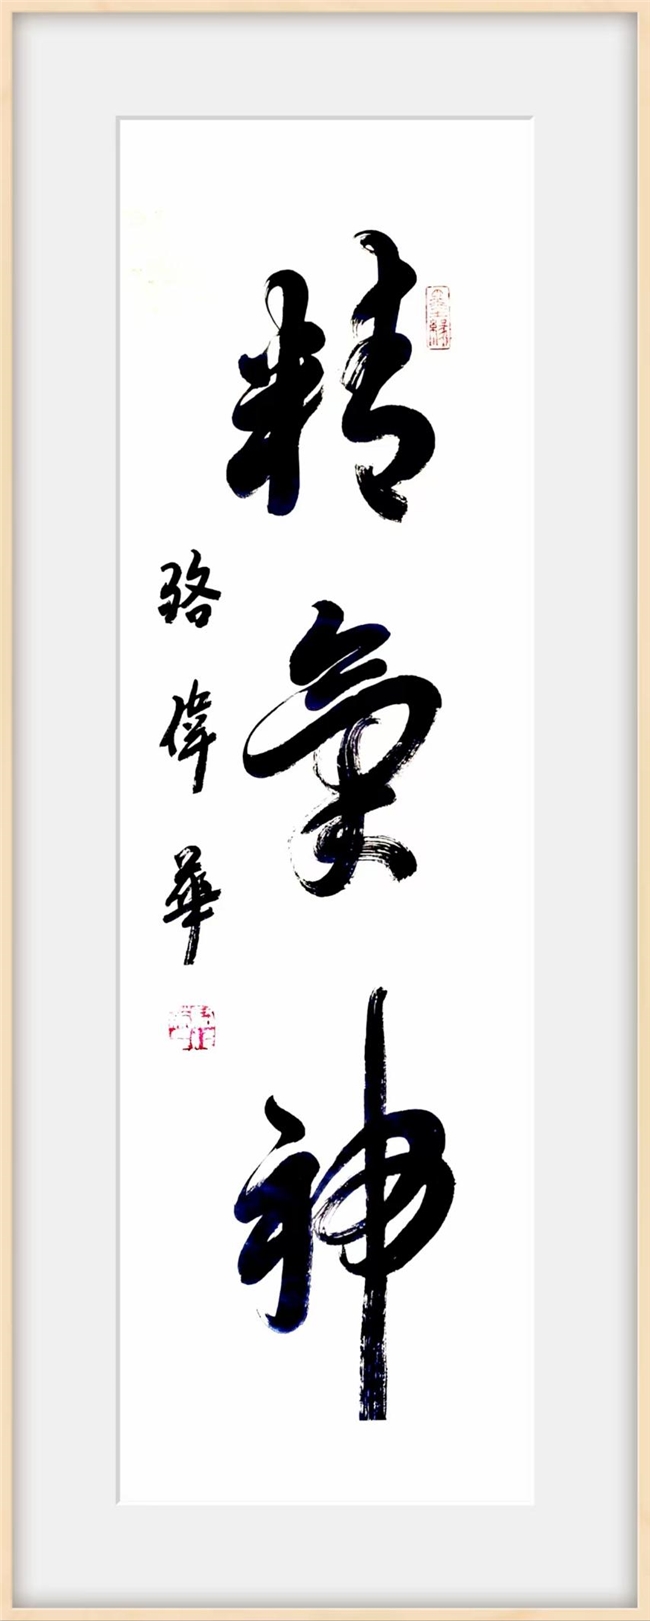 精氣神
駱偉華